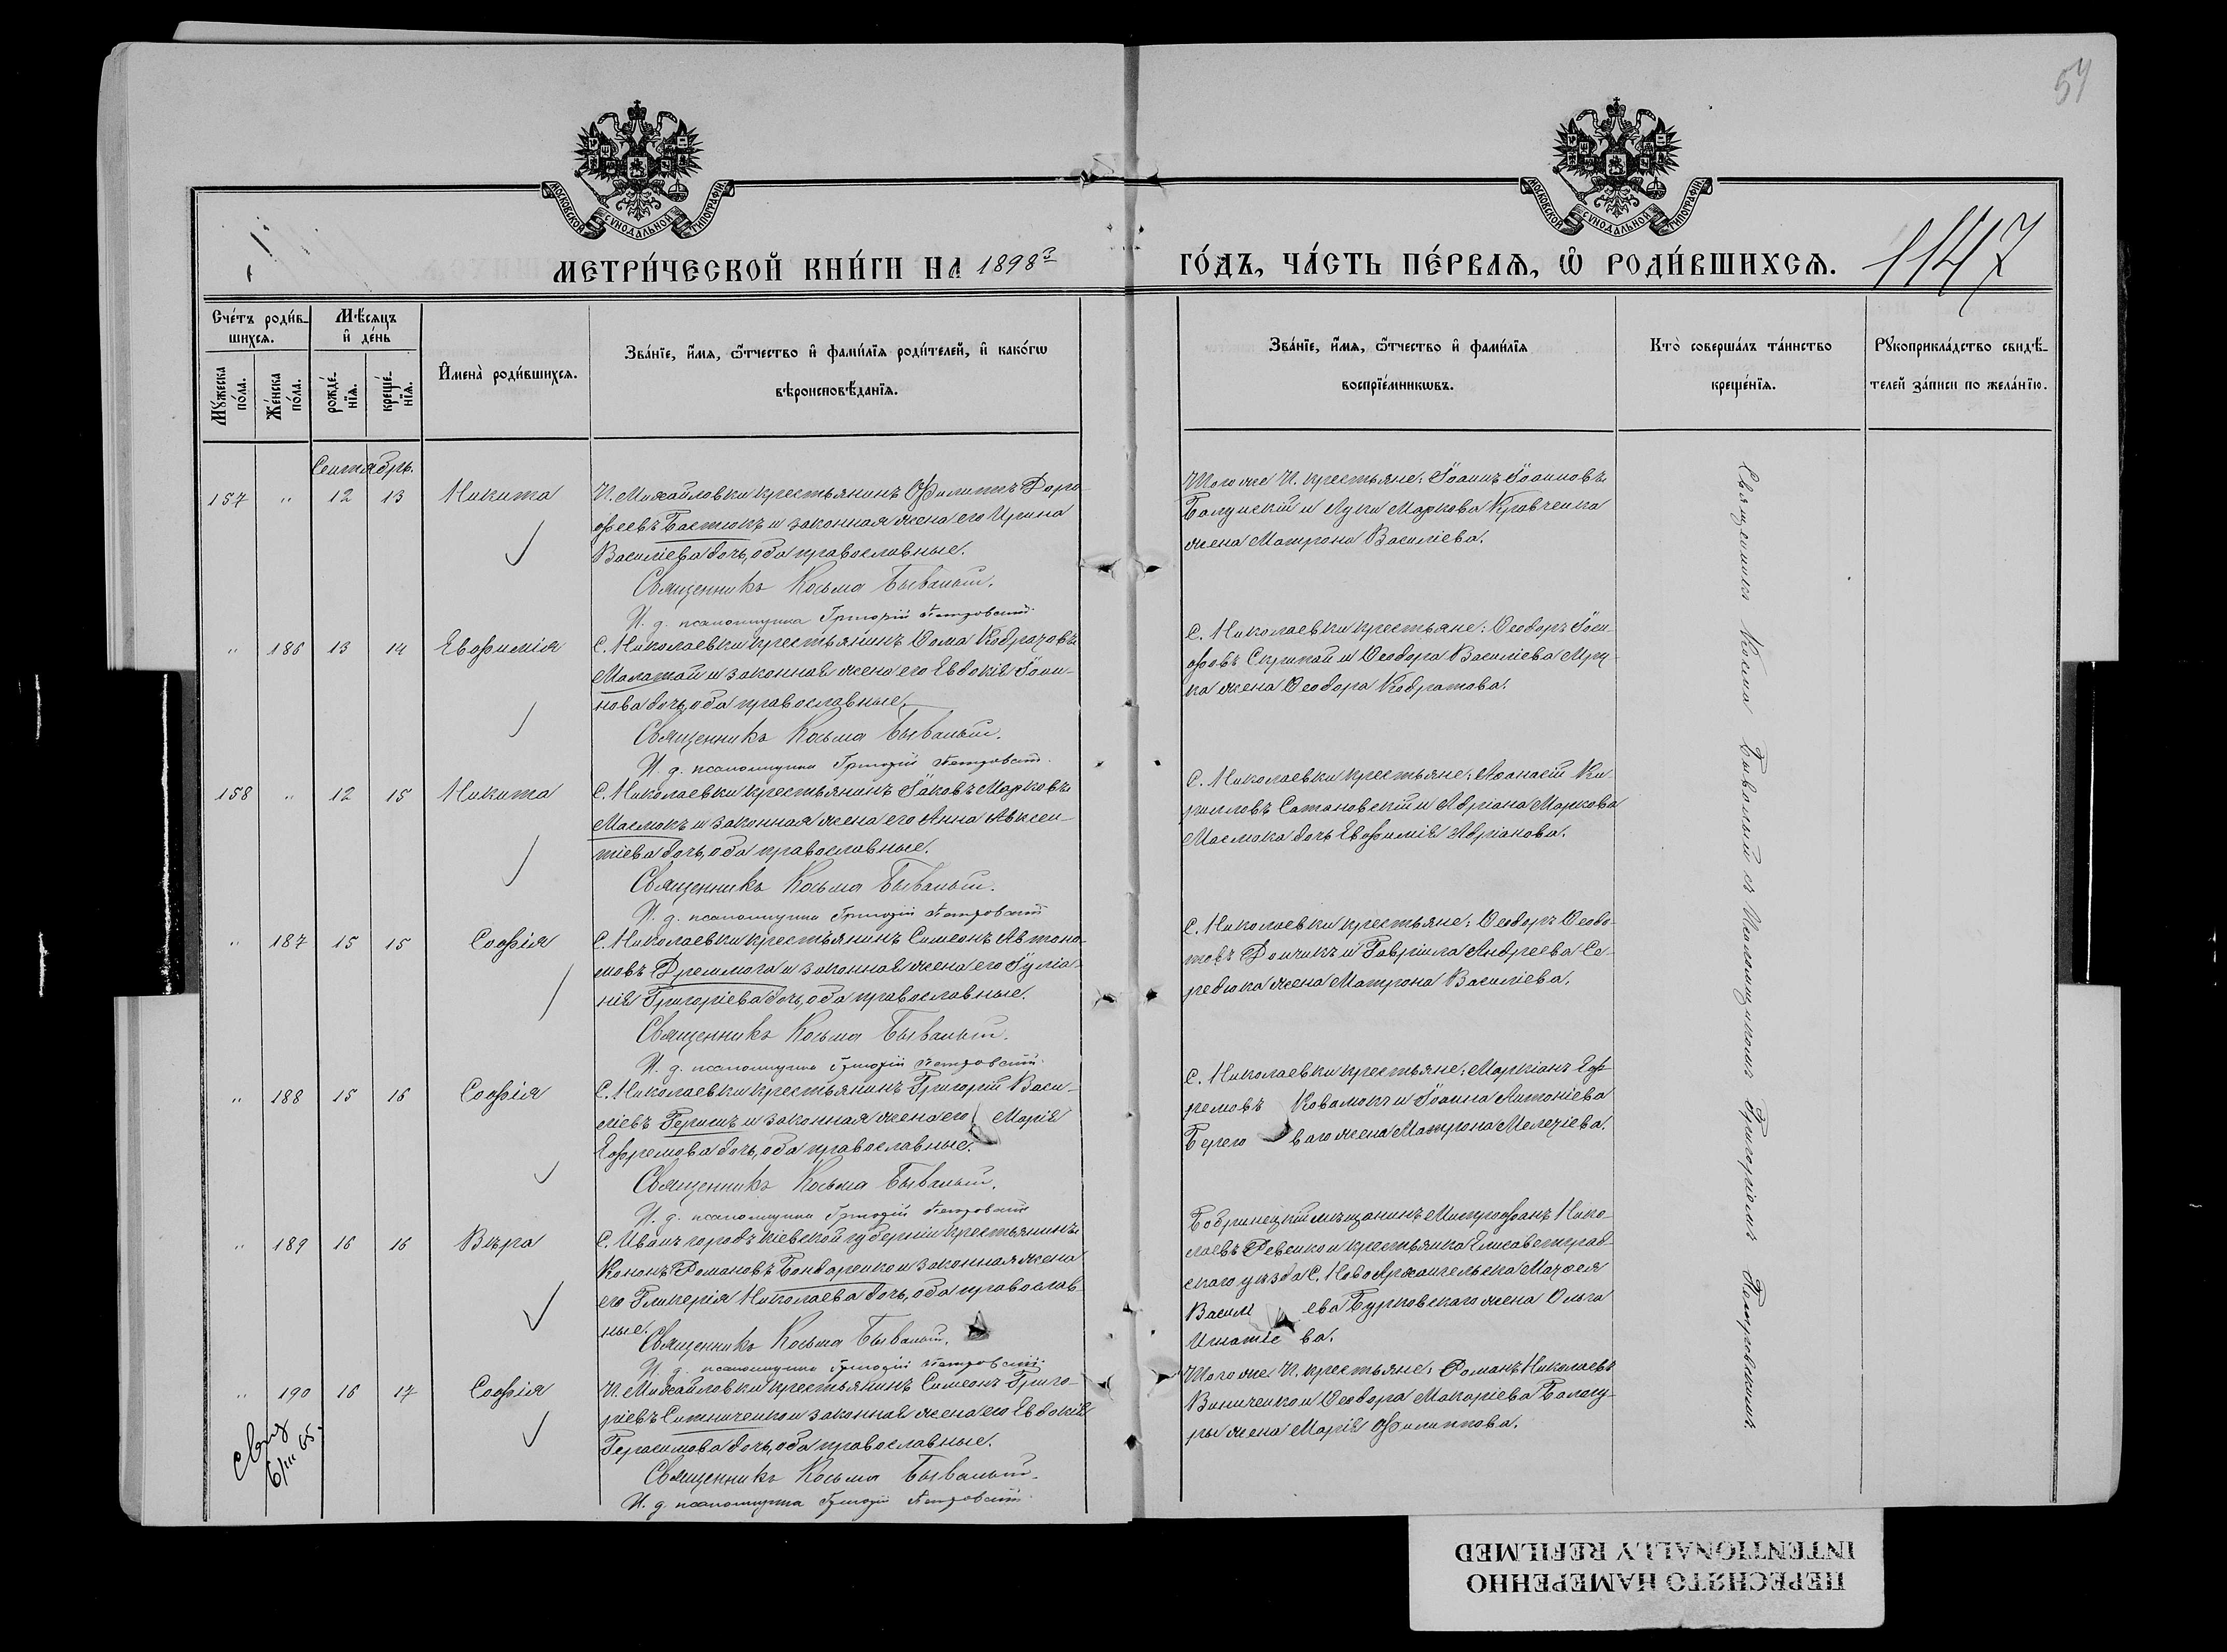 54
МОСКОВСКОЙ СѴНОДАЛЬНОЙ ТИПОГРАФІИ
МОСКОВСКОЙ СѴНОДАЛЬНОЙ ТИПОГРАФІИ
МЕТРИ́ЧЕСКОЙ КНИ́ГИ НА 1898й
ГО́ДЪ, ЧА́СТЬ ПЕ́РВАЯ, Ѡ҆ РОДИ́ВШИХСЯ. 1147
Сче́тъ роди́в-
шихся.
Мꙋ́жеска по́ла.
Же́нска по́ла.
Мѣ́сяцъ
и҆ де́нь
рожде́-
нїя.
креще́-
нїя.
И҆мена̀ роди́вшихся.
Зва́нїе, и҆́мя, ѻ҆́тчество и҆ фами́лїя роди́телей, и҆ како́гѡ
вѣроисповѣ́данїя.
Зва́нїе, и҆́мя, ѻ҆́тчество и҆ фами́лїя
воспрїе́мникѡвъ.
Кто̀ соверша́лъ та́инство
креще́нїя.
Рꙋкоприкла́дство свидѣ́-
телей за́писи по жела́нїю.
Сентябрь.
157 " 12 13 Никита
И. Михайловки крестьянинъ Филиппъ Доро-
феевъ Бастюкъ и законная жена его Ирина
Василіева дочь, оба православные.
Священникъ Косьма Бывалый.
И. д. псаломщика Григорій Петровскій.
Того же И. крестьяне: Іоаннъ Іоанновъ
и Луки Маркова Кравченка
жена Матрона Василіева.
" 186 13 14 Евфимія
С. Николаевки крестьянинъ Ѳома Кодратовъ
Малатай и законная жена его Евдокія Іоан-
нова дочь, оба православные.
Священникъ Косьма Бывалый.
И. д. псаломщика Григорій Петровскій.
С. Николаевки крестьяне: Ѳеодоръ Іоси-
фовъ Скрипай и Ѳеодора Василіева
жена Ѳеодора Кодратова.
158 " 12 15 Никита
С. Николаевки крестьянинъ Іаковъ Марковъ
Маслюкъ и законная жена его Анна Авксен-
тіева дочь, оба православные.
Священникъ Косьма Бывалый.
И. д. псаломщика Григорій Петровскій
С. Николаевки крестьяне: Аѳанасій Ки-
рилловъ Сатановскій и Адріана Маркова
Маслюка дочь Евфимія Адріанова.
" 187 15 15 Софія
С. Николаевки крестьянинъ Симеонъ Автоно-
мовъ Дремлюга и законная жена его Іуліа-
нія Григоріева дочь, оба православные.
Священникъ Косьма Бывалый.
И. д. псаломщика Григорій Петровскій.
С. Николаевки крестьяне: Ѳеодоръ Ѳеодо-
товъ Дончикъ и Гавріила Андреева Се-
редюка жена Матрона Василіева.
" 188 15 16 Софія
С. Николаевки крестьянинъ Григорій Васи-
ліевъ и законная жена его Марія
Ефремова дочь, оба православные.
Священникъ Косьма Бывалый.
И. д. псаломщика Григорій Петровскій
С. Николаевки крестьяне: Маркіанъ Еф-
ремовъ Ковалюкъ и Іоанна Антоніева
Берего ваго жена Матрона Мелетіева.
" 189 16 16 Вѣра
С. Иванъ городъ Кіевской губерніи крестьянинъ
Кононъ Романовъ Бондаренко и законная жена
его Гликерія Николаева дочь, оба православ-
ные.
Священникъ Косьма Бывалый.
И. д. псаломщика Григорій Петровскій.
Бобринецкій мѣщанинъ Митрофанъ Нико-
лаевъ Ревенко и крестьянка Елисаветград-
скаго уѣзда С. Ново Архангельска Моѵсея
Васил ева Бурковскаго жена Ольга
Игнатіе ва.
" 190 16 17 Софія
И. Михайловки крестьянинъ Симеонъ Григо-
ріевъ Ситниченко и законная жена его Евдокія
Герасимова дочь, оба православные.
Священникъ Косьма Бывалый.
И. д. псаломщика Григорій Петровскій.
Того же И. крестьяне: Романъ Николаевъ
Винниченко и Ѳеодора Макаріева Балагу-
ры жена Марія Филиппова.
Священникъ Косма Бывалый съ Псаломщикомъ Григоріемъ Петровскимъ.
6/III 65.
ПЕРЕСНЯТО НАМЕРЕННО
INTENTIONALLY REFILMED